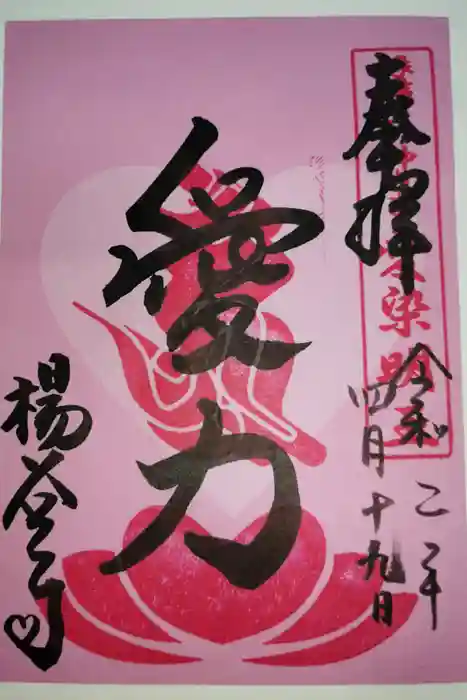 奉拝
令和二年
四月十九日
愛力
楊谷寺